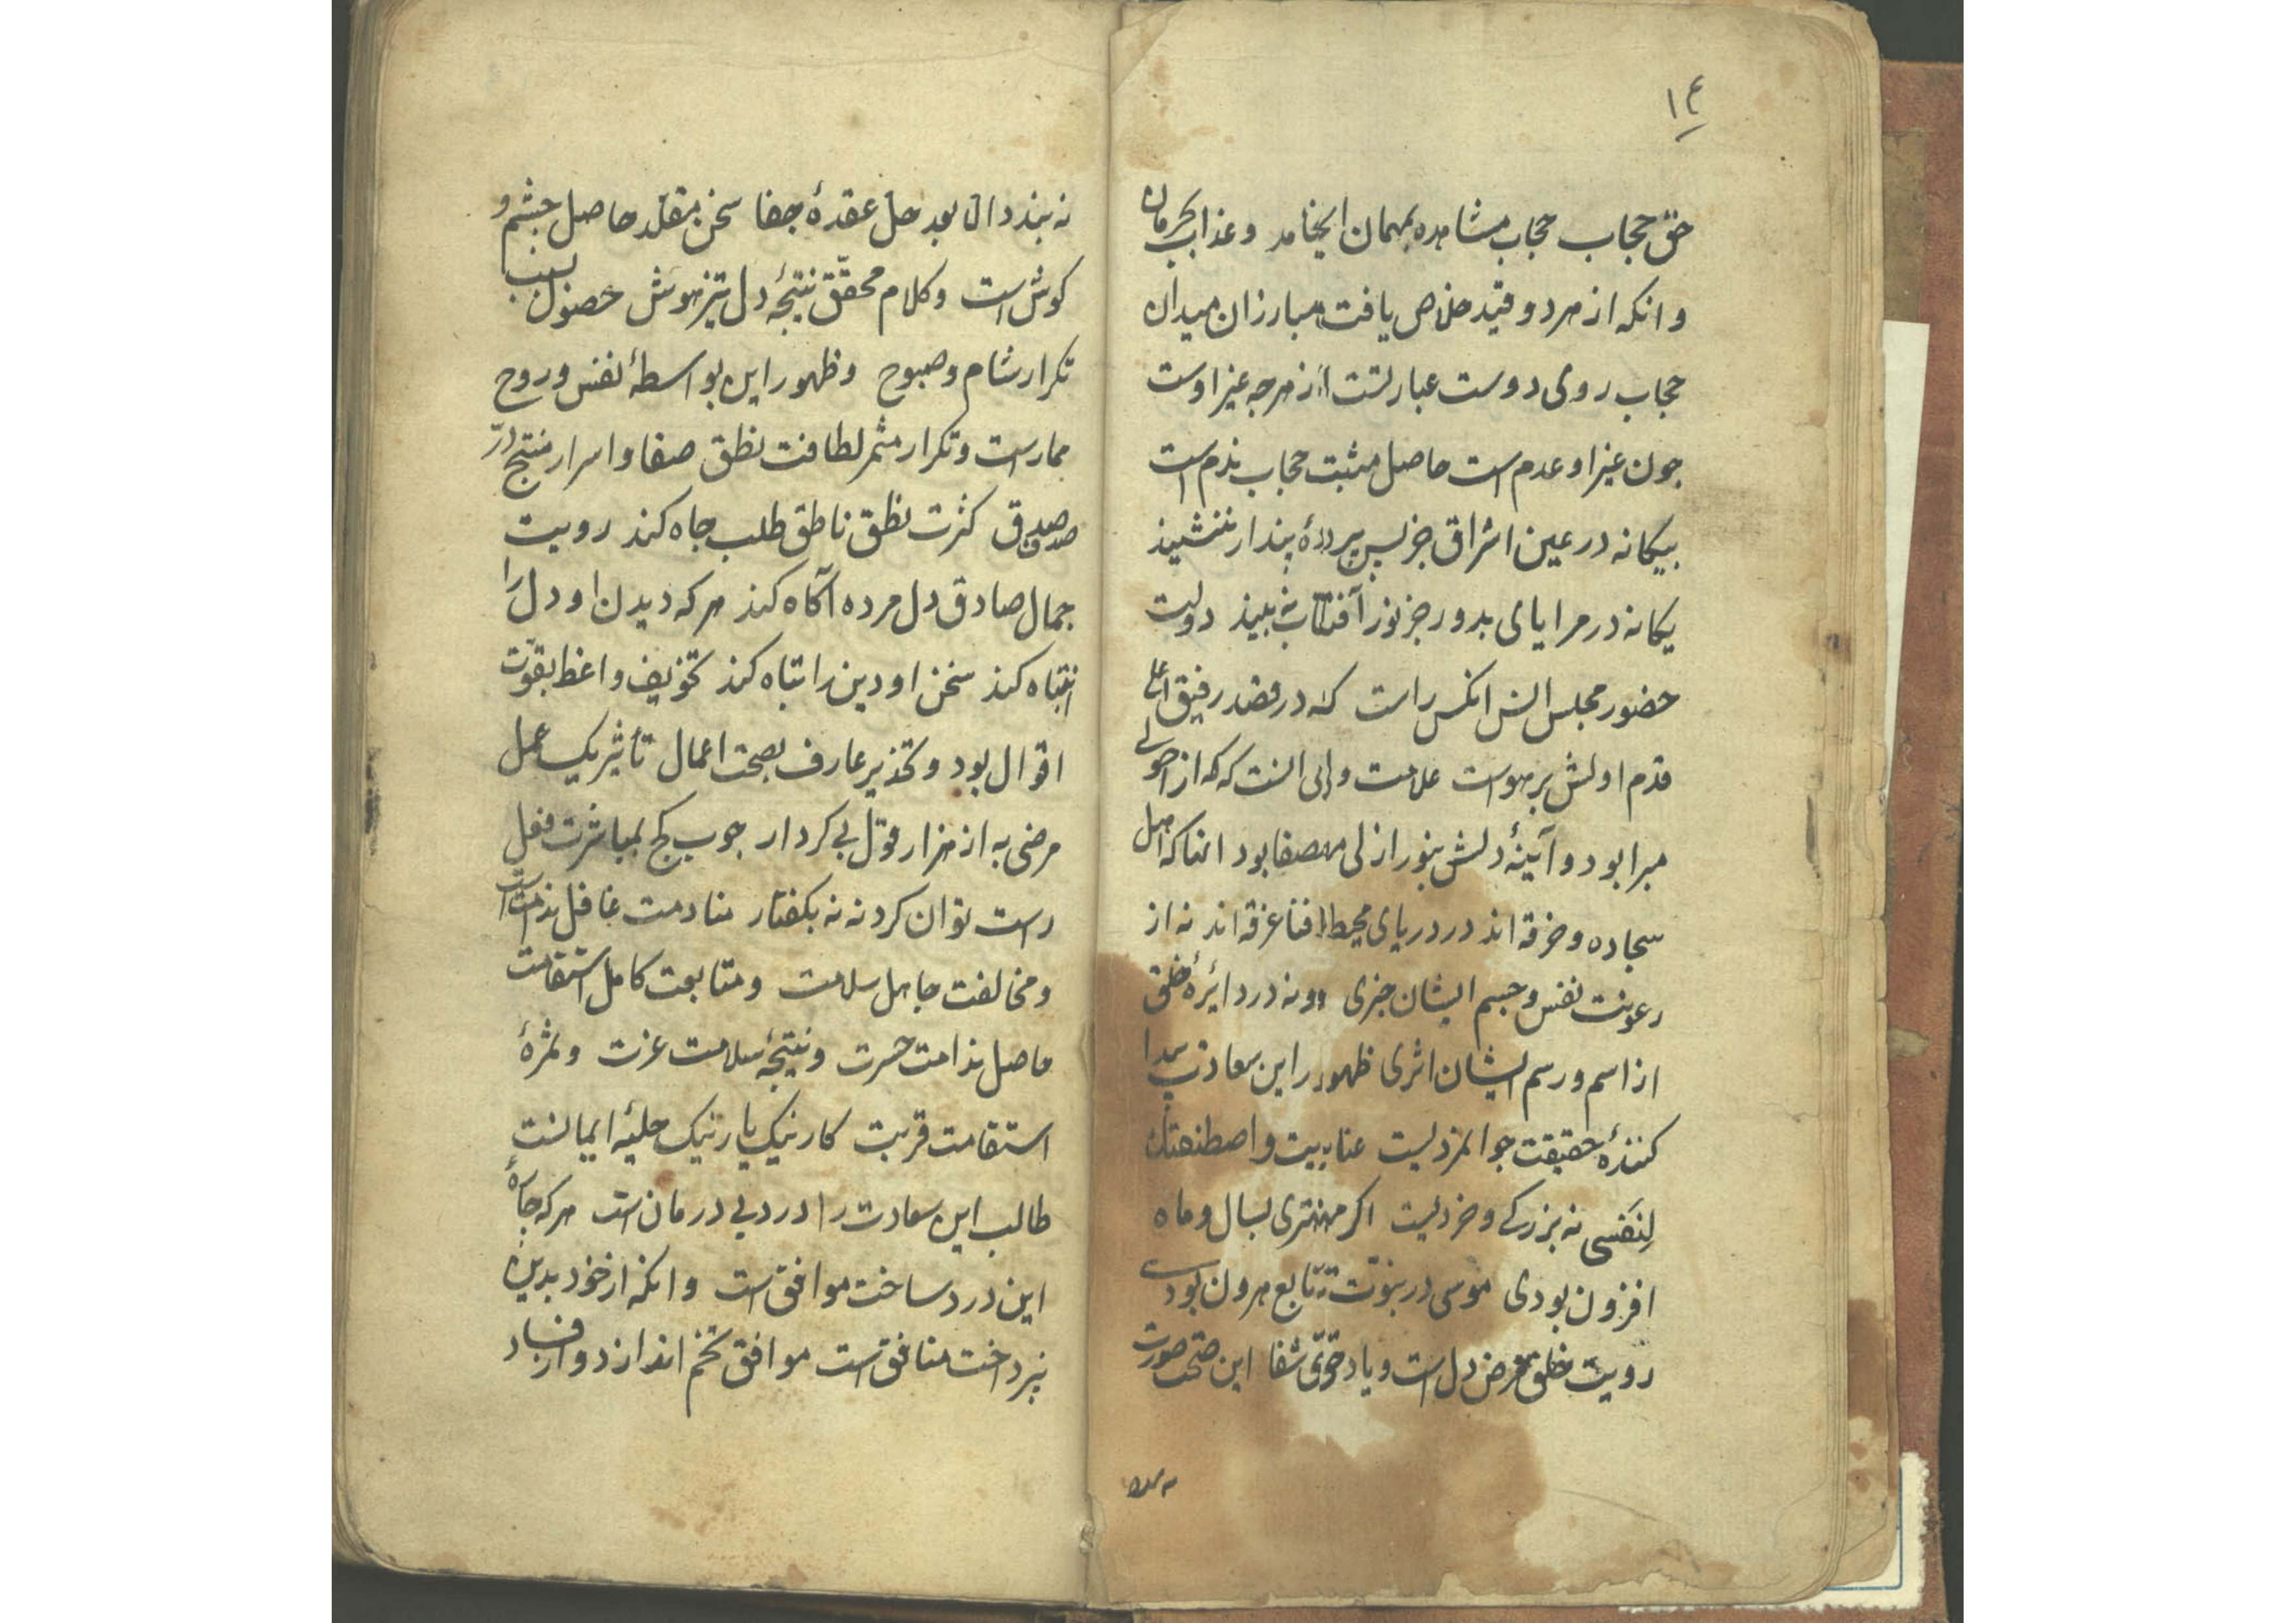 ۱۴
حق حجاب حجاب مشاهده بهمان انجامد و عذاب حرمان
وانکه از هر دو قید خلاص یافت مبارزان میدان
حجاب روی دوست عبارتست از هرچه غیر اوست
جون غیر او عدم است حاصل مثبت حجاب ندم است
بیکانه در عین اشراق جز پس پردهٔ پندار ننشیند
یکانه در مرایای بدور جز نور آفتاب نه بیند دولت
حضور مجلس انس انکس راست که در قصد رفیق اعلی
قدم اولش بر هواست علامت والی انست که که از احولی
مبرا بود و آیینهٔ دلش بنور ازلی مصفا بود انناکه اهل
سجاده و خرقه اند در دریای محیط فنا غرقه اند نه از
رعونت نفس و جسم ایشان جزی و ونه در دائرهٔ خلق
از اسم و رسم ایشان اثری ظهور این سعادت پیدا
کنندهٔ حقیقت جوانمردیست عنایت واصطنعتک
لِنَفسی نه بزرکی و خردیست اکر مهتری بسال و ماه
افزون بودی موسی در نبوّت تابع هرون بودی
رویت خلق مرض دل است و یاد حق شفا این صحت صورت
نه بندد الا بعد حل عقدهٔ جفا سخن مقلد حاصل چشم و
کوش است و کلام محقّق نتیجهٔ دل تیزهوش حصول بسبب
تکرار شام و صبوح وظهور این بواسطهٔ نفس و روح
ممارست و تکرار مثمر لطافت نطق صفا و اسرار منتج درّ
صدق کثرت نطق ناطق طلب جاه کند رویت
جمال صادق دل مرده آکاه کند هر که دیدن او دل را
انتباه کند سخن او دین را تباه کند تخویف واعظ بقوّت
اقوال بود و تحذیر عارف بصحت اعمال تأثیر یک عمل
مرضی به از هزار قول بی کردار چوب کج بمباشرت فعل
راست توان کرد نه نه بکفتار منادمت غافل ندامت است
و مخالفت جاهل سلامت و متابعت کامل استقامت
حاصل ندامت حسرت و نتیجهٔ سلامت عزت و ثمرهٔ
استقامت قربت کار نیک یار نیک حلیهٔ ایمانست
طالب این سعادت را درد بی درمان است هر که جاهٔ
این درد ساخت موافق است وانکه از خود بدین
نپرداخت منافق است موافق تخم اندازد و از فساد